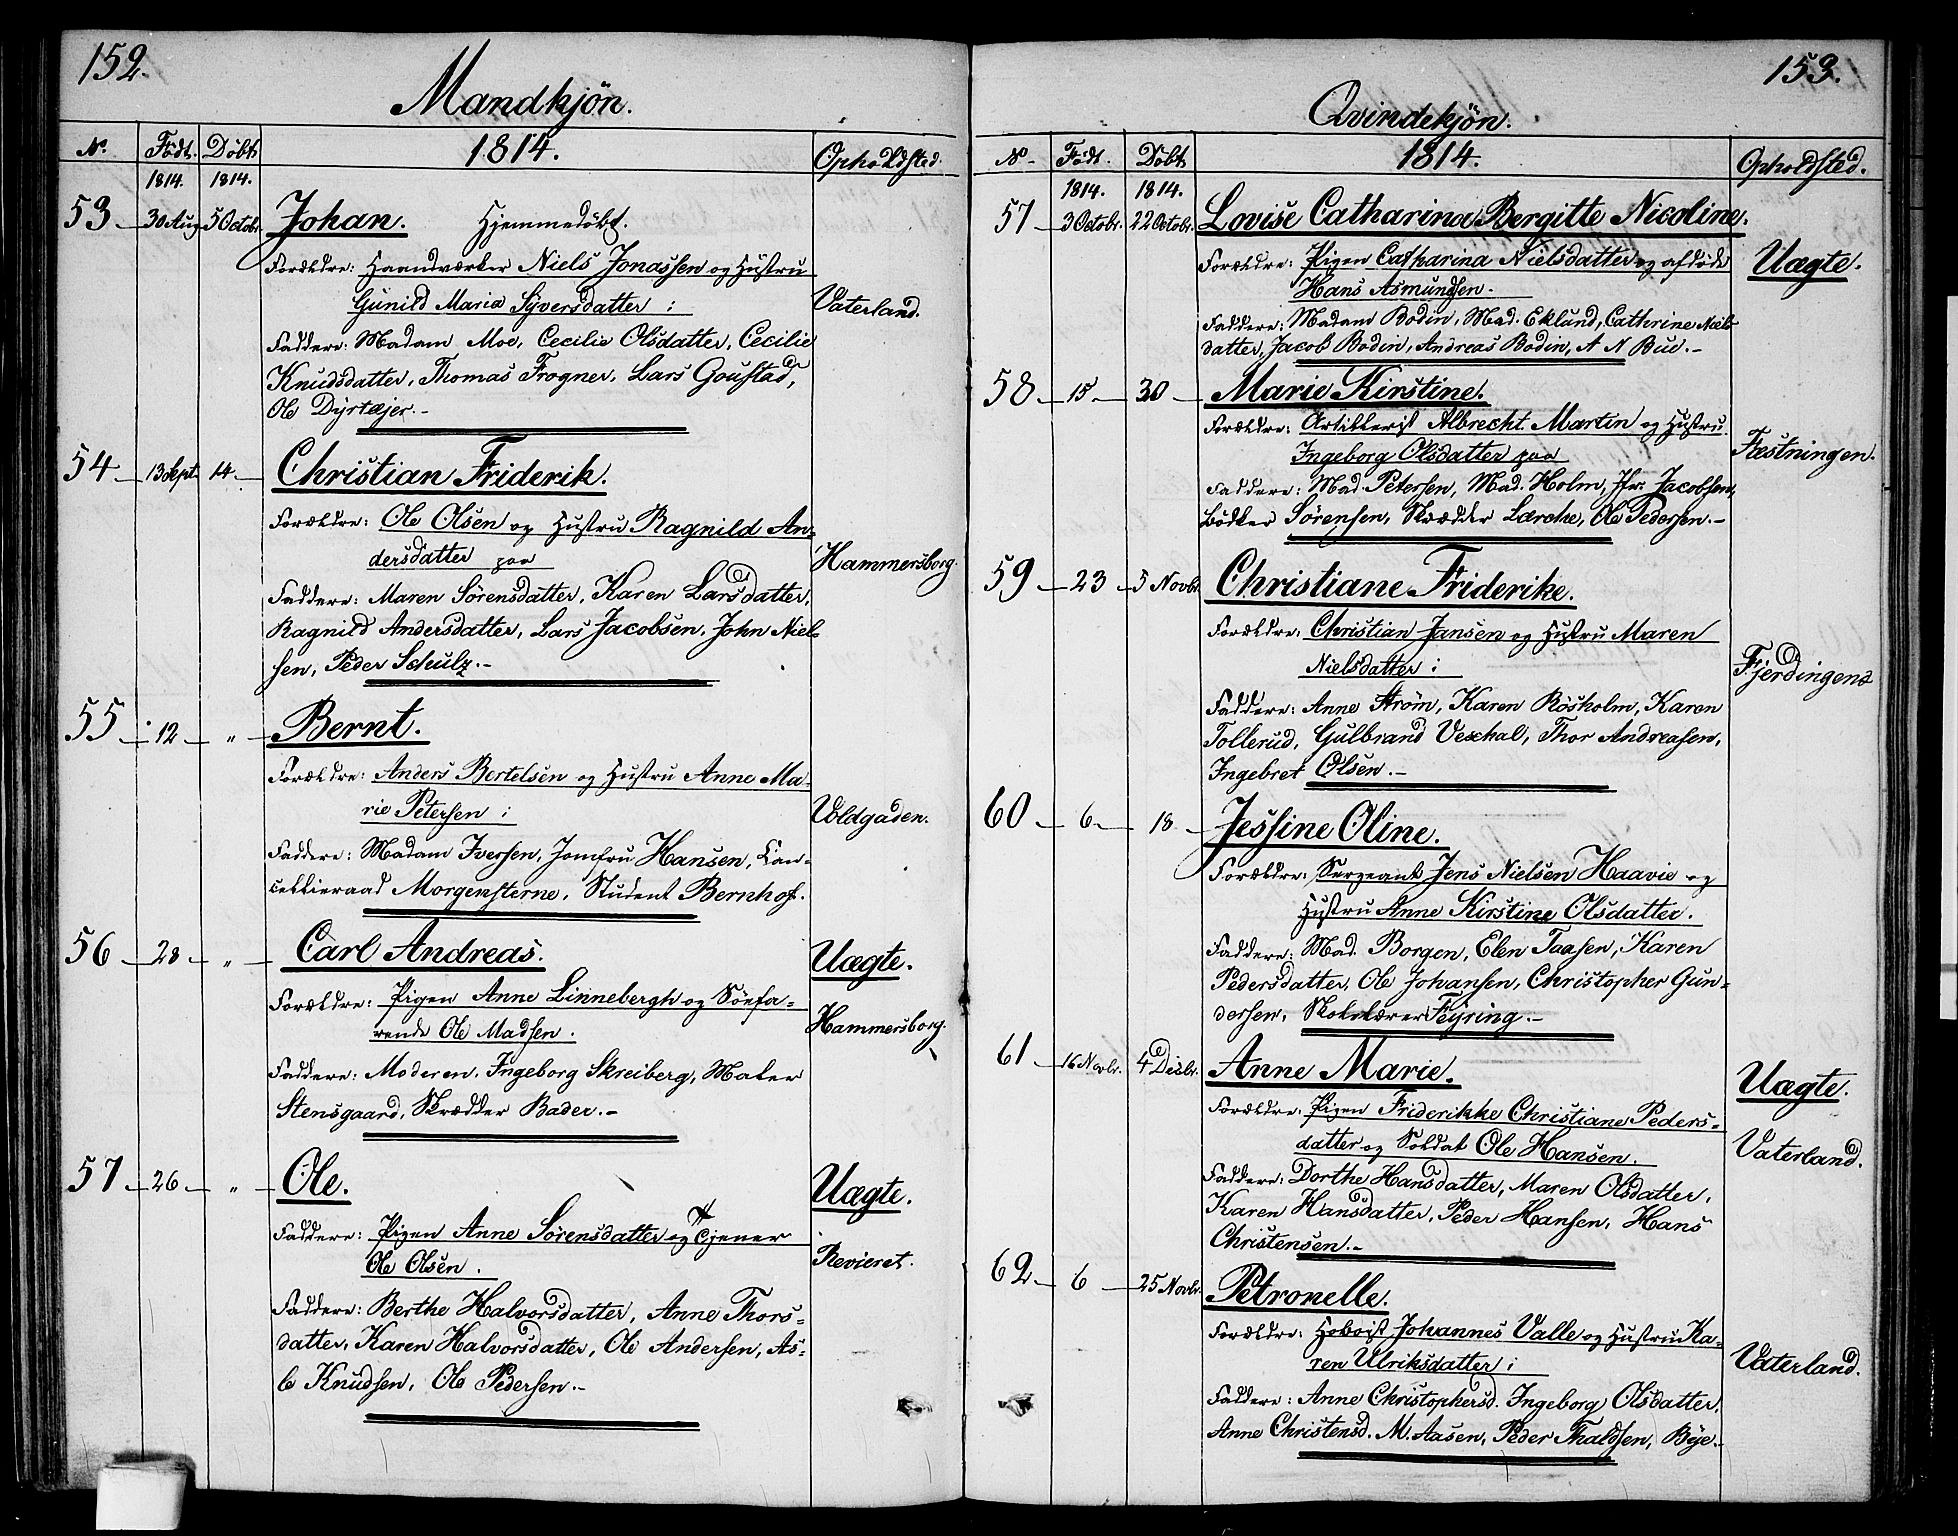 152.
Mandkjön.
No. Födt. Döbt. 1814. Opholdsted.
1814. 1814.
53 30 Aug 5 Octobr. Johan. Hjemmedöbt.
Forældre: Haandværker Niels Jonassen og Hustru
Gunild Maria Syversdatter i Vaterland.
Faddere: Madam Moe, Cecilie Olsdatter, Cecilie
Knudsdatter, Thomas Frogner, Lars Goustad,
Ole Dyrtæjer.-
54 13 Sept. 14 Christian Friderik.
Forældre: Ole Olsen og Hustru Ragnild An-
dersdatter paa Hammersborg.
Faddere: Maren Sörensdatter, Karen Larsdatter,
Ragnild Andersdatter, Lars Jacobsen, John Niel-
sen, Peder Schulz.-
55 12 " Bernt.
Forældre: Anders Bertelsen og Hustru Anne Ma-
rie Petersen i Voldgaden.
Faddere: Madam Iversen, Jomfru Hansen, Can-
cellieraad Morgensterne, Student Bernhof.
56 28 " Carl Andreas. Uægte.
Forældre: Pigen Anne Linnebergh og Söefa-
rende Ole Madsen. Hammersborg.
Faddere: Moderen, Ingeborg Skreiberg, Maler
Stensgaard, Skrædder Bader.-
57 26 " Ole. Uægte.
Faddere: Pigen Anne Sörensdatter og Tjener
Ole Olsen. Revieret.
Faddere: Berthe Halvorsdatter, Anne Thors-
datter, Karen Halvorsdatter, Ole Andersen, As-
le Knudsen, Ole Pedersen.-
153.
Qvindekjön.
No. Födt. Döbt. 1814. Opholdsted.
1814. 1814.
57 3 Octobr. 22 Octobr. Lovise Catharina Bergitte Nicoline.
Forældre: Pigen Catharina Nielsdatter og afdöde Uægte.
Hans Asmundsen.
Faddere: Madam Bodin, Mad. Eklund, Cathrine Niels-
datter, Jacob Bodin, Andreas Bodin, A N Bue.-
58 15 30 Marie Kirstine.
Forældre: Artillerist Albrecht Martin og Hustru
Ingeborg Olsdatter paa Fæstningen.
Faddere: Mad. Petersen, Mad. Holm, Jfr. Jacobsen,
Bödker Sörensen, Skrædder Lærche, Ole Pedersen.-
59 23 5 Novbr. Christiane Friderike.
Forældre: Christian Jansen og Hustru Maren
Nielsdatter i Fjerdingen
Faddere: Anne Ström, Karen Rösholm, Karen
Tollerud, Gulbrand Vexhal, Thor Andreasen,
Ingebret Olsen.-
60 6 18 Jessine Oline.
Forældre: Sergeant Jens Nielsen Haavie og
Hustru Anne Kirstine Olsdatter.
Faddere: Mad. Borgen, Elen Taasen, Karen
Pedersdatter, Ole Johansen, Christopher Gun-
dersen, Skolelærer Feyring.-
61 16 Novbr. 4 Decbr. Anne Marie. Uægte.
Forældre: Pigen Friderikke Christiane Peders-
datter og Soldat Ole Hansen. Vaterland.
Faddere: Dorthe Hansdatter, Maren Olsdatter,
Karen Hansdatter, Peder Hansen, Hans
Christensen.-
62 6 25 Novbr. Petronelle.
Forældre: Hoboist Johannes Valle og Hustru Ka-
ren Ulriksdatter i Vaterland.
Faddere: Anne Christophersd. Ingeborg Olsdatter,
Anne Christensd. M. Aasen, Peder Thaldsen, Böje.-